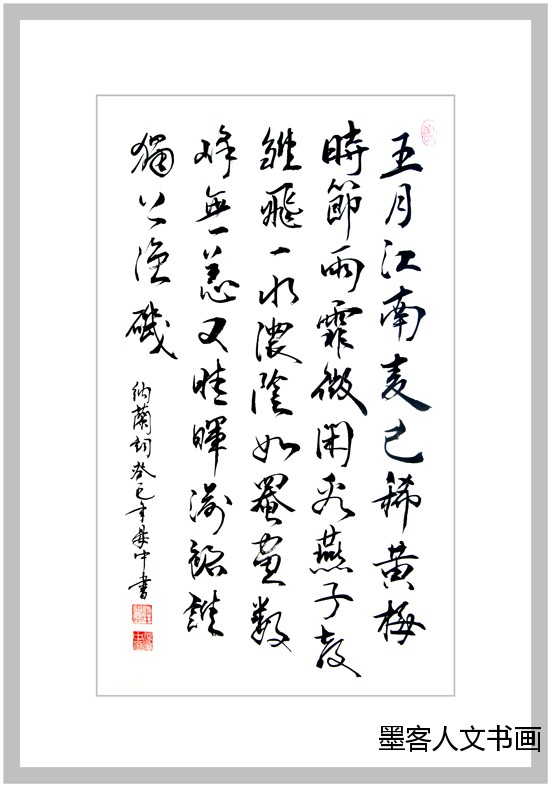 五月江南麦已稀黄梅
時節雨霏微閑看燕子教
雛飛一水濃陰如罨畫數
峰無恙又晴暉湔裙誰
獨上漁磯
納蘭詞癸巳年中書
墨客人文书画